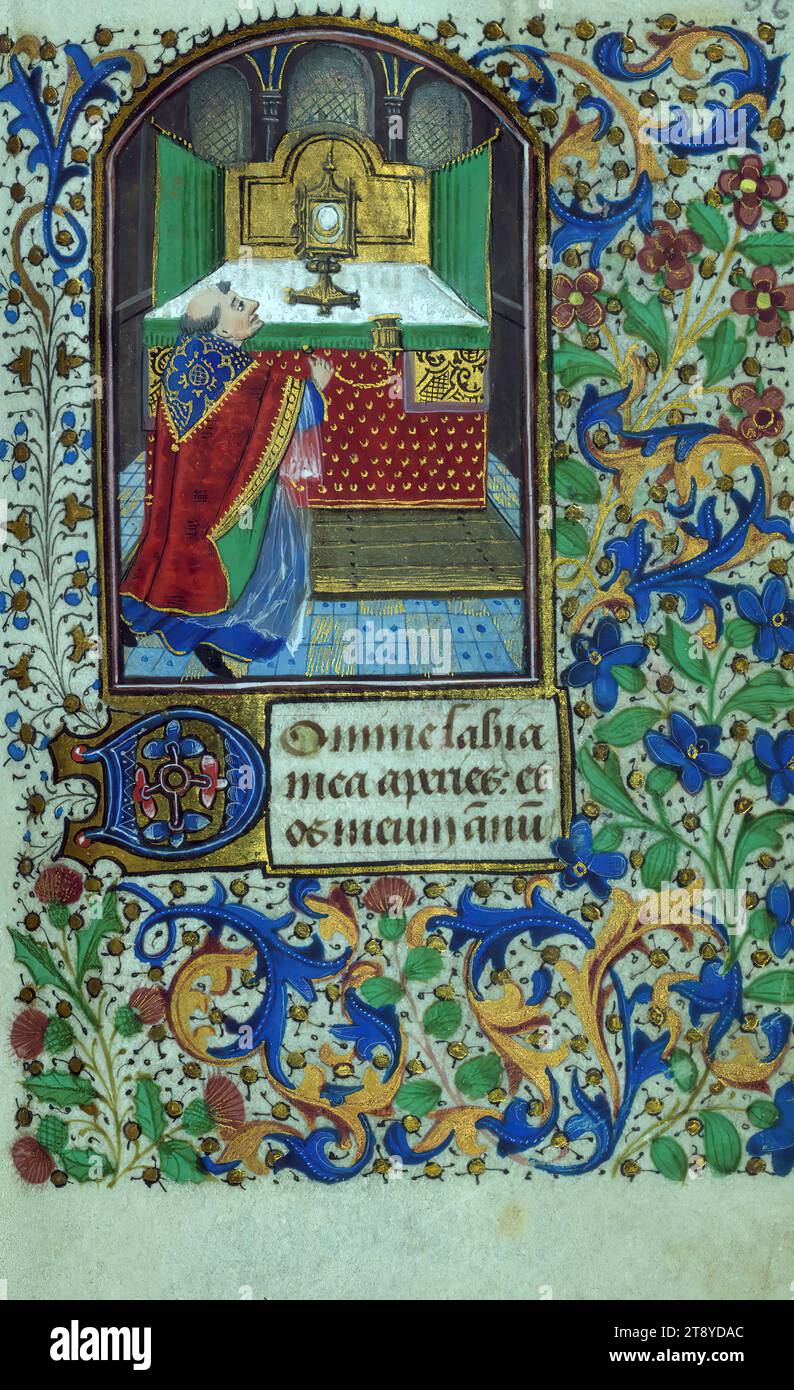 36
Domine labia
mea aperies: et
os meum ānū
alamy
Image ID: 2T8YDAC
www.alamy.com